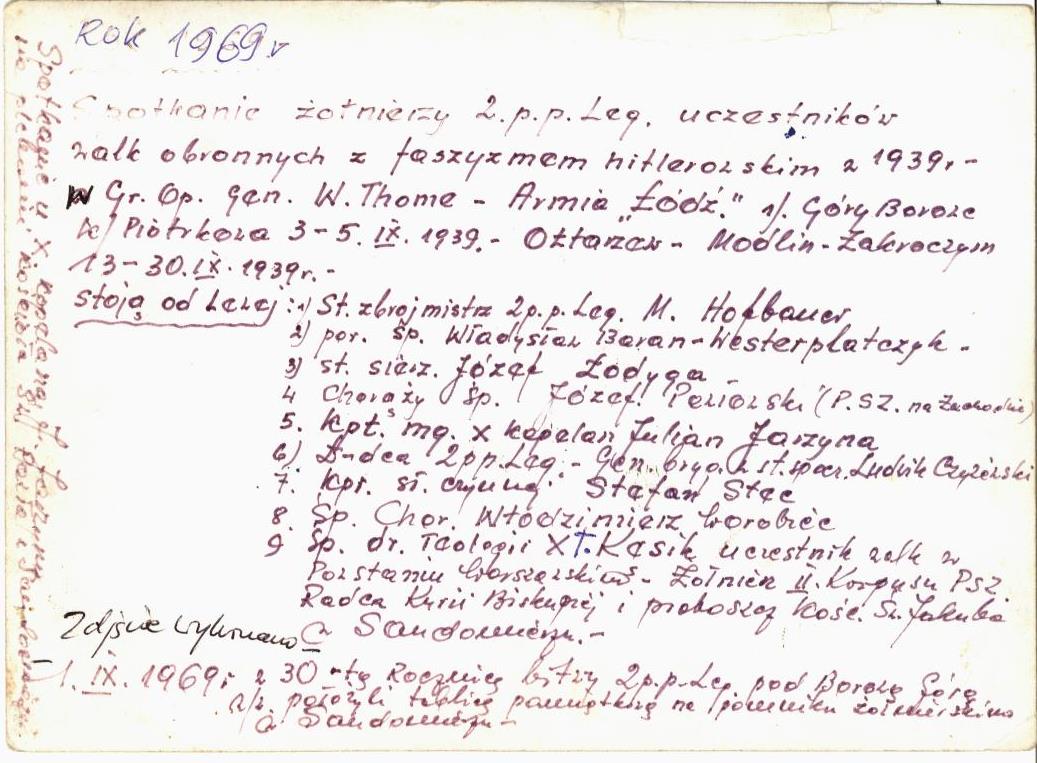 Rok 1969r
Spotkanie żołnierzy 2.p.p.Leg. uczestników
walk obronnych z faszyzmem hitlerowskim w 1939r-
w Gr. Op. Gen. W. Thome - Armia „Łódź." Góry Borowe
k/ Piotrkowa 3-5.IX.1939.- Ożarów - Modlin-Zakroczym
13-30.IX.1939r.-
Stoją od Lewej: 1) St. zbrojmistrz 2p.p.Leg. M. Hofbauer
2) por. śp. Władysław Baran-Westerplatczyk -
3) st. sierż. Józef Łodyga -
4 Chorąży śp. Józef Periorski (P.SZ. na Zachodzie)
5. Kpt. mg. x kapelan Julian Jarzyna
6) D-dca 2pp.Leg.- Gen. bryg. w st. spocz. Ludwik Czyżewski
7. Kpr. sł. czynnej Stefan Stec
8. Śp. Chor. Włodzimierz Worobiec
9 Śp. dr. Teologii X T. Kasik uczestnik walk w
Powstaniu Warszawskim - Żołnierz II. Korpusu PSZ.
Radca Kurii Biskupiej i proboszcz Kośc. Św. Jakuba
Zdjęcie wykonano w Sandomierzu.-
1. IX. 1969r w 30-tą Rocznicę bitwy 2p.p.Leg. pod Borową Górą
w/w położyli tablicę pamiątkową na pomniku żołnierskim
w Sandomierzu -
Spotkanie u X. kapelana J. Jarzyny
na plebanii